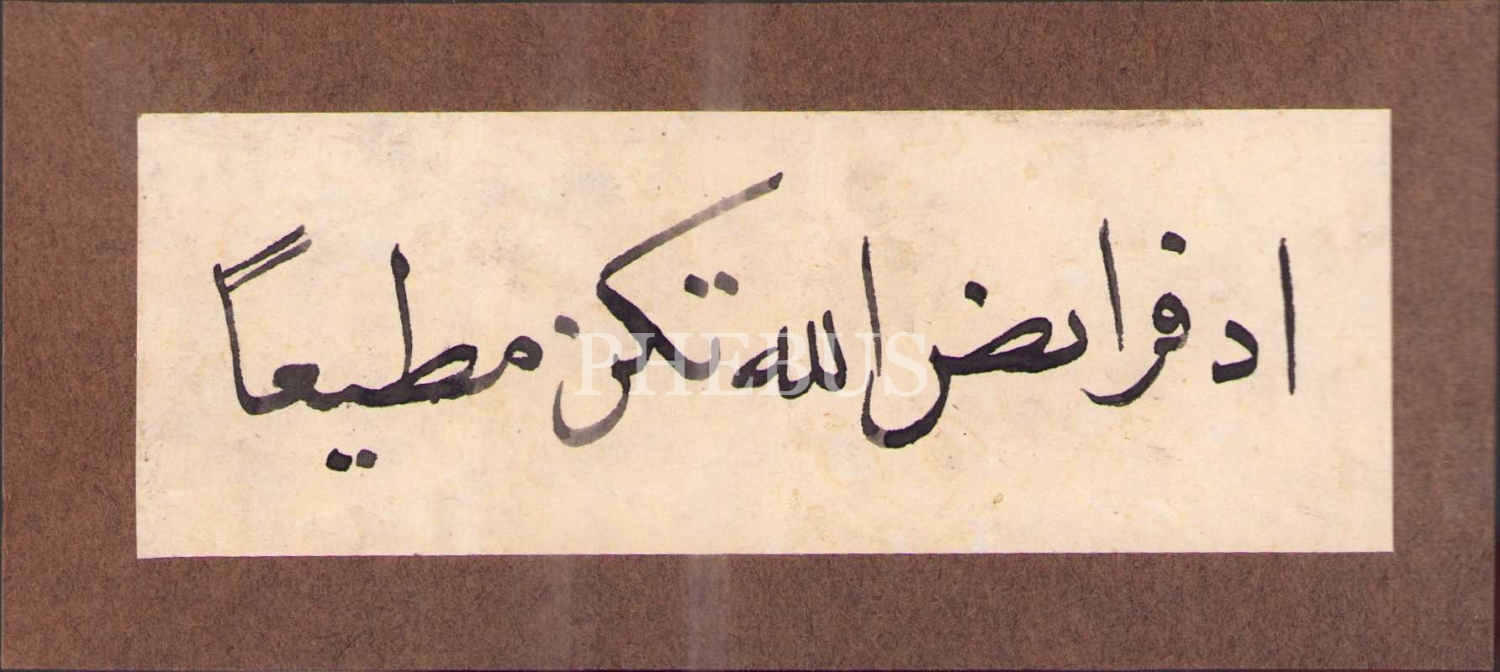 اد فرائض الله تكن مطيعاً
PHEBUS